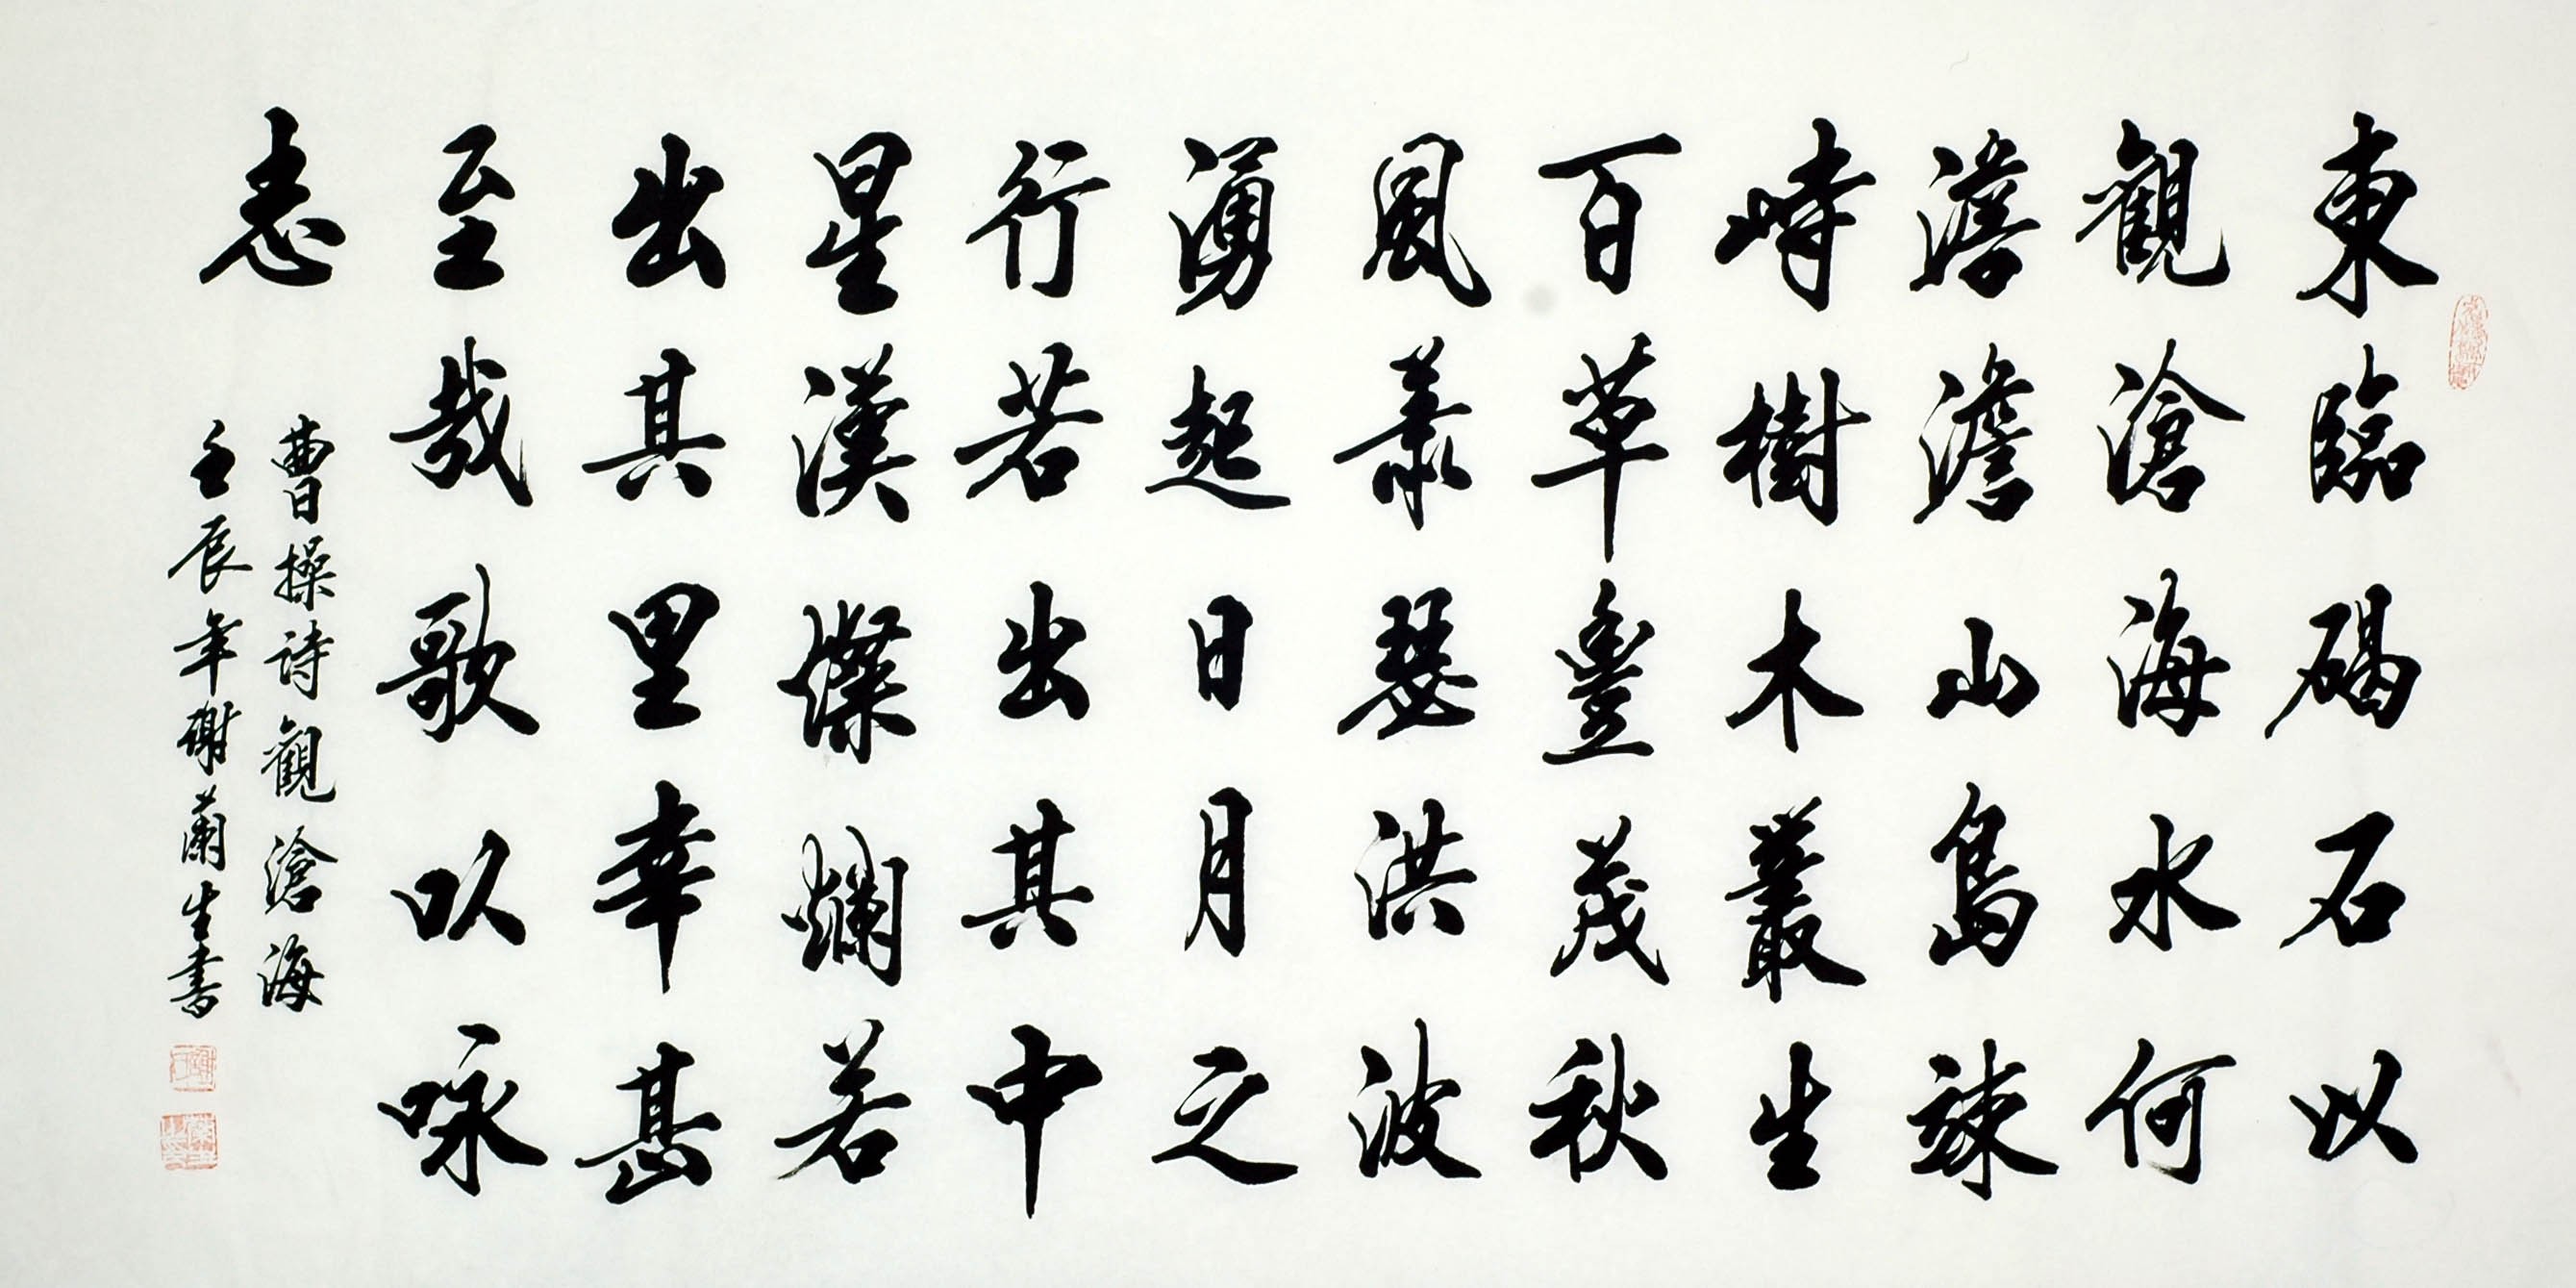 東臨碣石以
觀滄海水何
澹澹山島竦
峙樹木叢生
百草豐茂秋
風蕭瑟洪波
湧起日月之
行若出其中
星漢燦爛若
出其里幸甚
至哉歌以咏
志
曹操詩觀滄海
壬辰年謝蘭生書